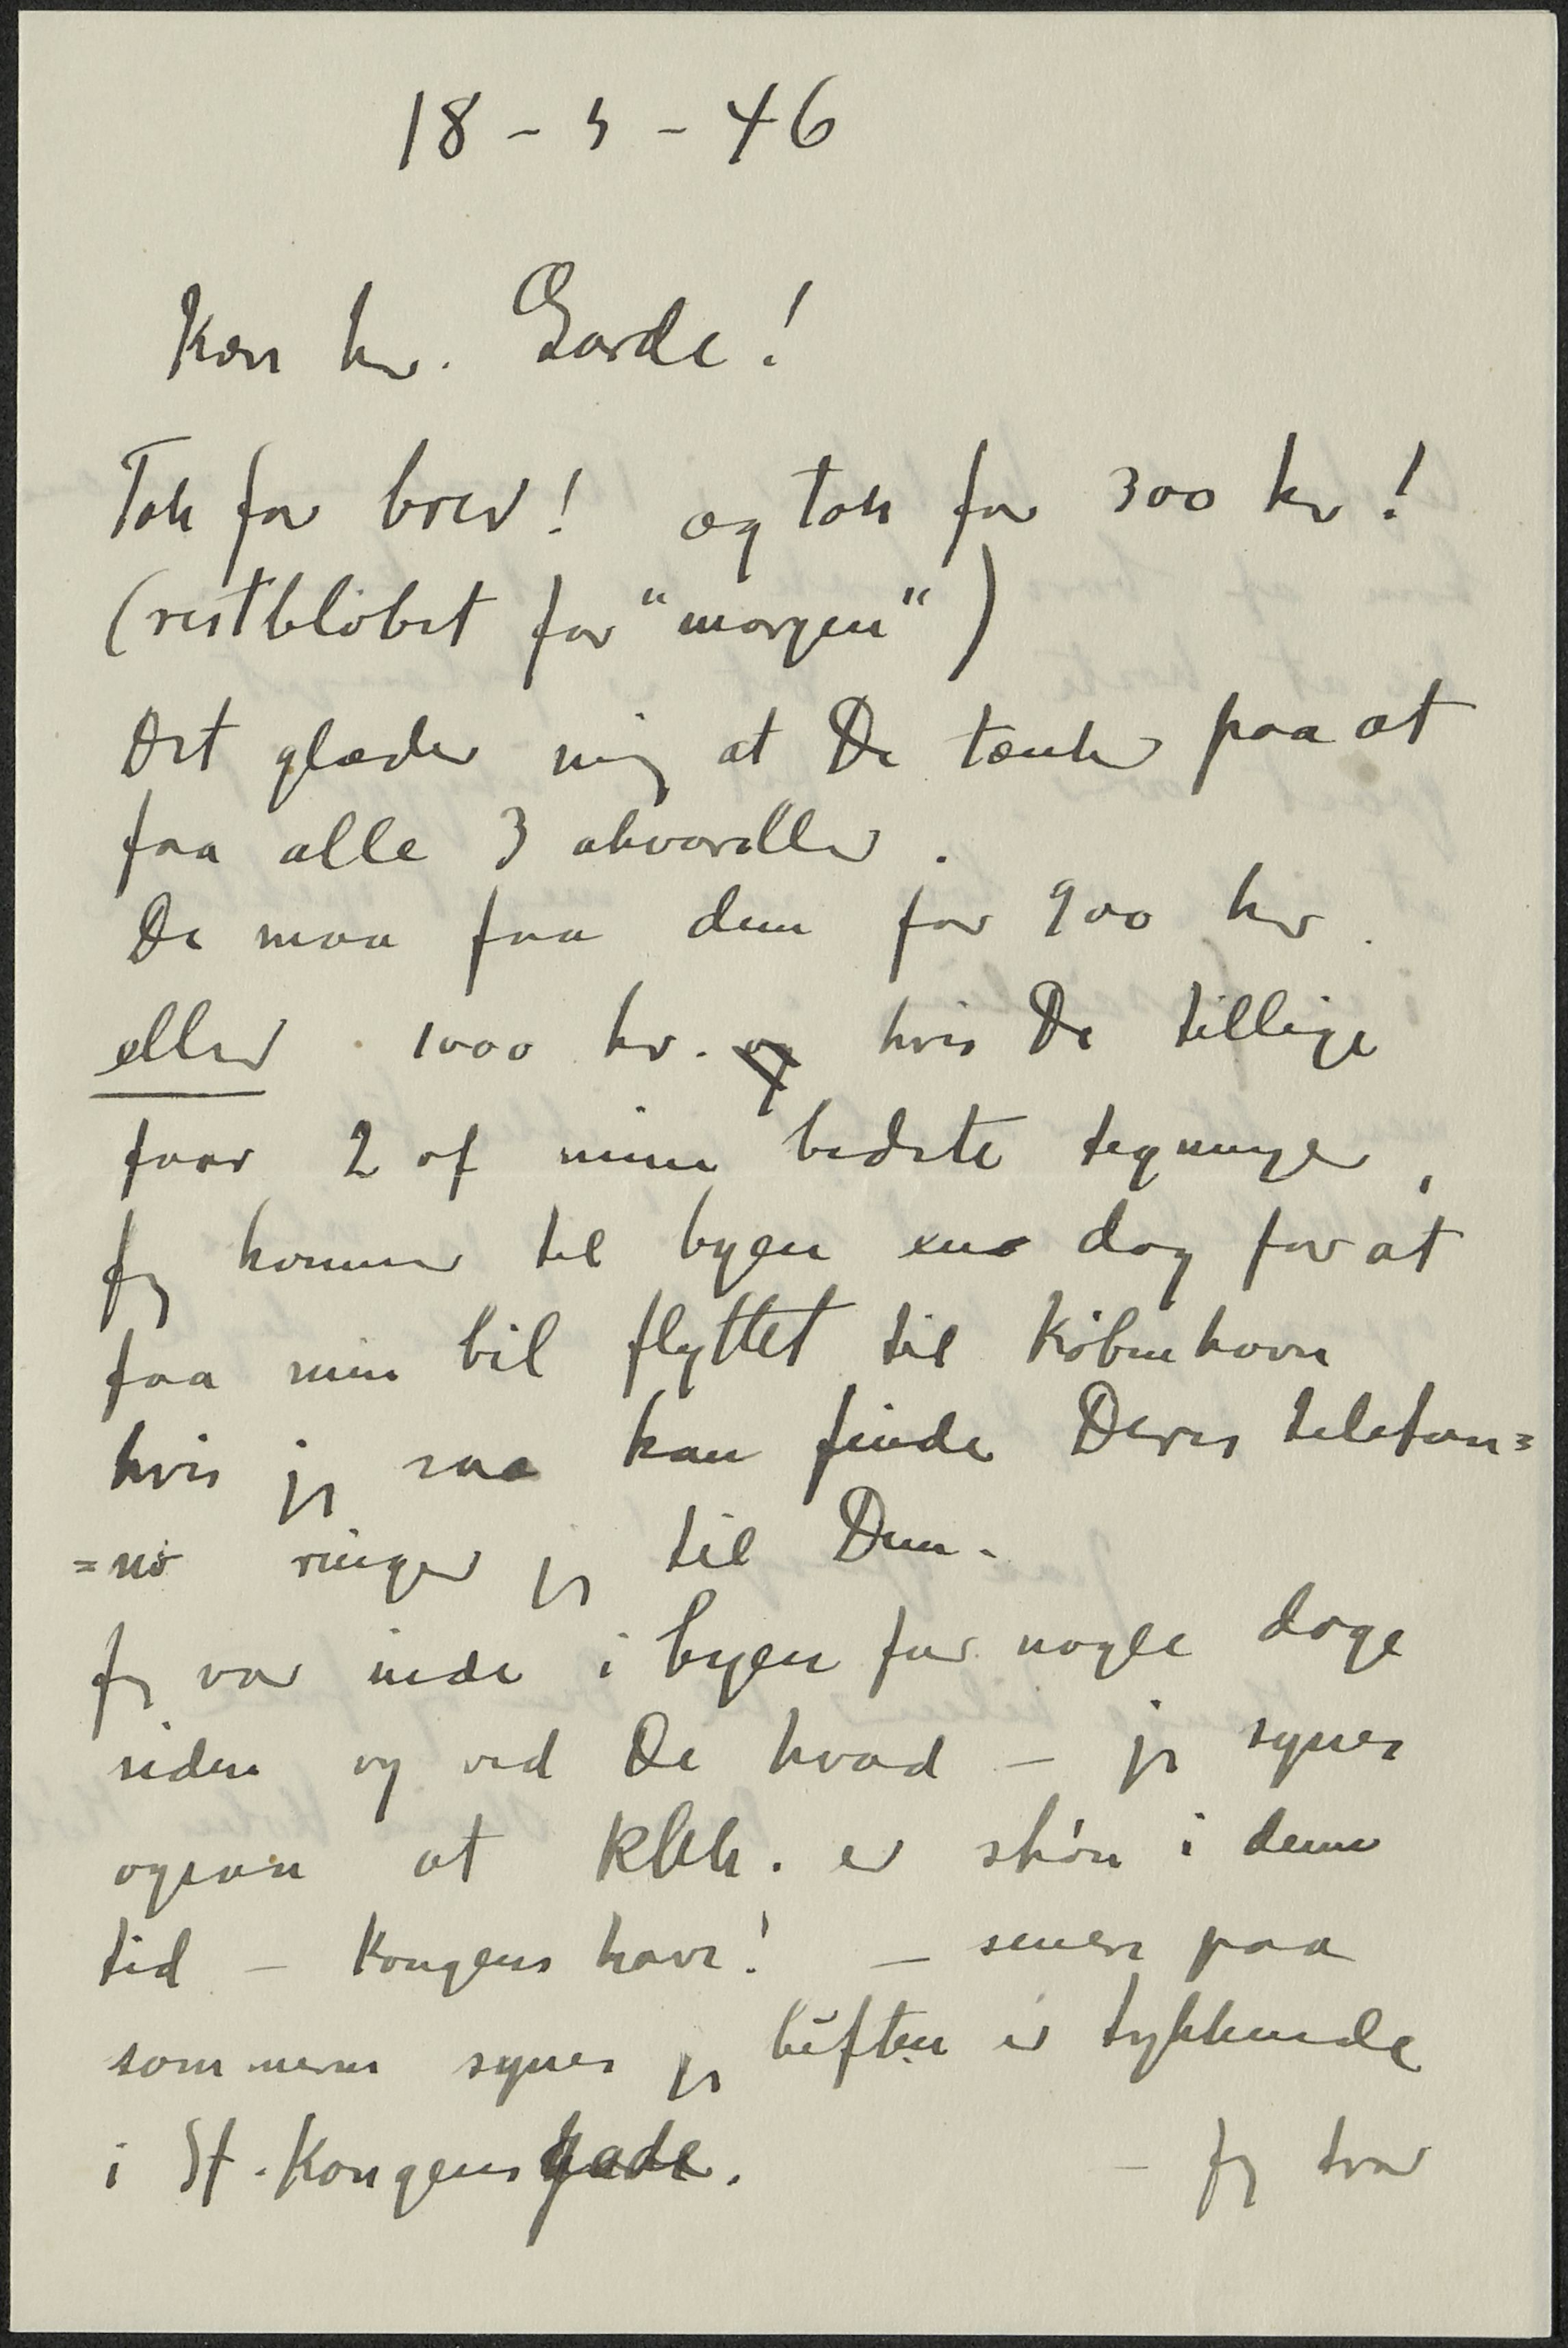 18 - 5 - 46
Kære hr. Garde!
Tak for brev! og tak for 300 kr!
(restbløbet for "morgen")
Det glæder mig at De tænker paa at
faa alle 3 akvareller.
De maa faa dem for 900 kr.
eller 1000 kr. hvis De tillige
faar 2 af mine bedste tegninger,
Jeg kommer til byen en dag for at
faa min bil flyttet til København
hvis jeg saa kan finde Deres telefon=
=nr ringer jeg til Dem.
Jeg var inde i byen for nogle dage
siden og ved De hvad – jeg synes
ogsaa at Kbh. er skøn i denne
tid – Kongens have! – senere paa
sommeren synes jeg luften er trykkende
i St. Kongensgade. – Jeg tror